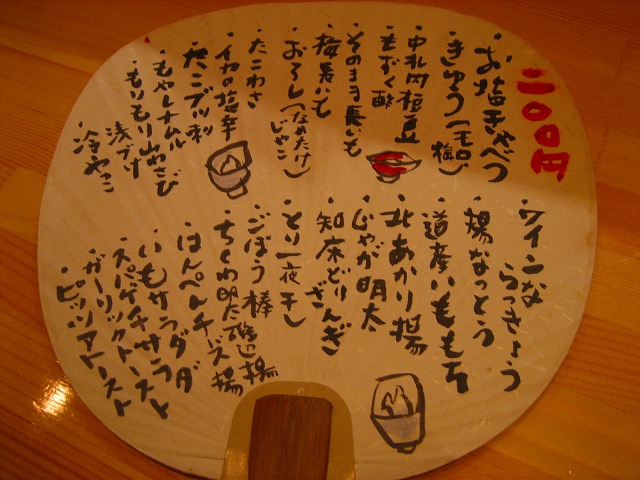 二〇〇円
・お塩きゃべつ
・きゅうり(モロ、梅)
・中札内枝豆
・もずく酢
・そのまま長いも
・梅長いも
・おろし(なめたけ、じゃこ)
・たこわさ
・イカの塩辛
・たこブツ刺
・もやしナムル
・もりもり山わさび
・浅づけ
・冷やっこ
・ワインならっきょう
・揚なっとう
・道産いももち
・北あかり揚
・じゃが明太
・知床どりざんぎ
・とり一夜干し
・ごぼう棒
・ちくわ明太磯辺揚
・はんぺんチーズ揚
・いもサラダ
・スパゲチサラダ
・ガーリックトースト
・ピッツアトースト